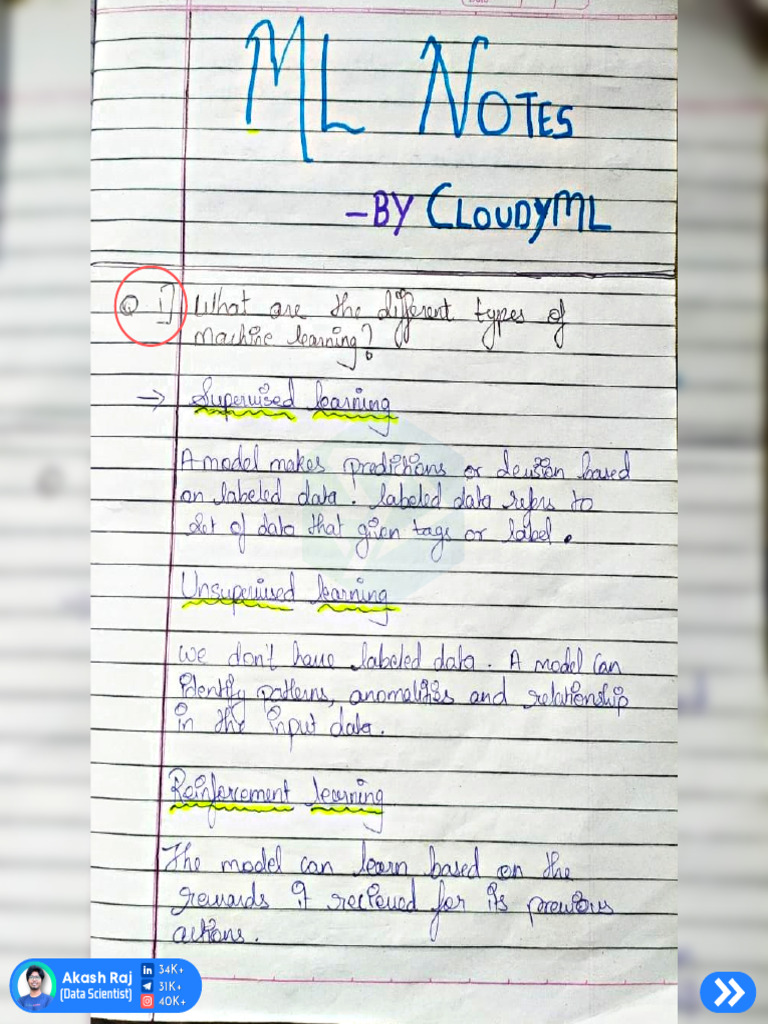 ML NOTES
-BY CLOUDYML
Q 1] What are the different types of
machine learning?
→ Supervised learning
A model makes predictions or decision based
on labeled data. Labeled data refers to
set of data that given tags or label.
Unsupervised learning
We don't have labeled data. A model can
identify patterns, anomalities and relationship
in the input data.
Reinforcement learning
The model can learn based on the
rewards it recieved for its previous
actions.
Akash Raj
(Data Scientist)
in 34K+
31K+
40K+